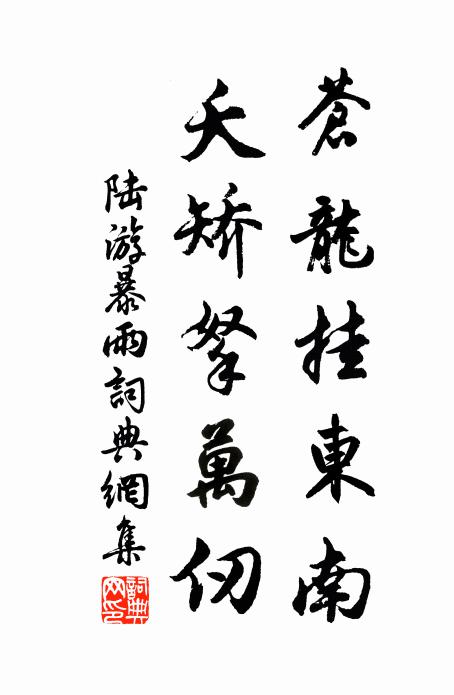 蒼龍挂東南
夭矯拏萬仞
陸游暴雨詞典網集
詞典網印